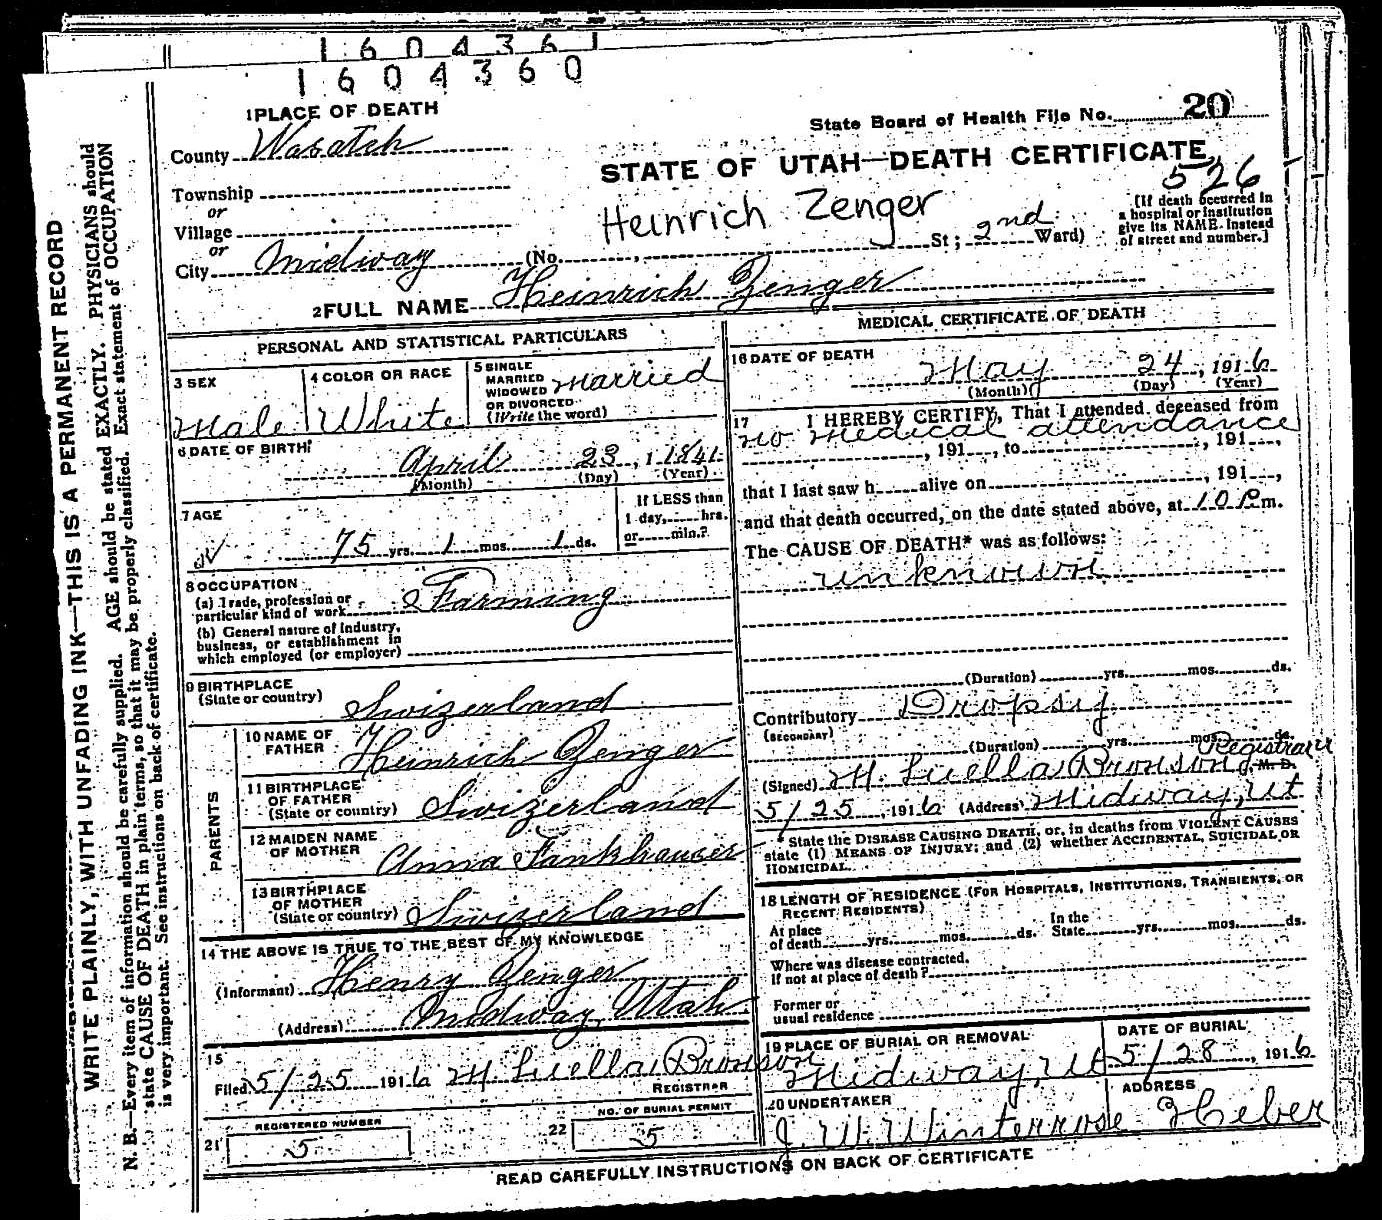 1604361
1604360
1 PLACE OF DEATH
State Board of Health File No. 20
County Wasatch
STATE OF UTAH—DEATH CERTIFICATE
526
Township
or
Village
or
City Midway (No. , St; 2nd Ward)
Heinrich Zenger
[If death occurred in
a hospital or institution
give its NAME instead
of street and number.]
2 FULL NAME Heinrich Zenger
PERSONAL AND STATISTICAL PARTICULARS
3 SEX
Male
4 COLOR OR RACE
White
5 SINGLE
MARRIED
WIDOWED
OR DIVORCED
(Write the word)
Married
6 DATE OF BIRTH
April 23, 1 1841
(Month) (Day) (Year)
7 AGE
75 yrs. 1 mos. 1 ds.
If LESS than
1 day, hrs.
or min.?
8 OCCUPATION
(a) Trade, profession or
particular kind of work Farming
(b) General nature of industry,
business, or establishment in
which employed (or employer)
9 BIRTHPLACE
(State or country) Swizerland
PARENTS
10 NAME OF
FATHER Heinrich Zenger
11 BIRTHPLACE
OF FATHER
(State or country) Swizerland
12 MAIDEN NAME
OF MOTHER Anna Fankhauser
13 BIRTHPLACE
OF MOTHER
(State or country) Swizerland
14 THE ABOVE IS TRUE TO THE BEST OF MY KNOWLEDGE
(Informant) Henry Zenger
(Address) Midway, Utah
15
Filed 5/25 1916 M. Luella Bronson
REGISTRAR
REGISTERED NUMBER
21 5
NO. OF BURIAL PERMIT
22 5
MEDICAL CERTIFICATE OF DEATH
16 DATE OF DEATH
May 24, 1916
(Month) (Day) (Year)
17 I HEREBY CERTIFY, That I attended deceased from
no medical attendance
, 191 , to , 191 ,
that I last saw h alive on , 191 ,
and that death occurred, on the date stated above, at 10 P.m.
The CAUSE OF DEATH* was as follows:
unknown
(Duration) yrs. mos. ds.
Contributory Dropsy
(SECONDARY)
(Duration) yrs. mos. ds.
Registrar
(Signed) M. Luella Bronson, M. D.
5/25, 1916 (Address) Midway, Ut
* State the DISEASE CAUSING DEATH, or, in deaths from VIOLENT CAUSES
state (1) MEANS OF INJURY; and (2) whether ACCIDENTAL, SUICIDAL OR
HOMICIDAL.
18 LENGTH OF RESIDENCE (FOR HOSPITALS, INSTITUTIONS, TRANSIENTS, OR
RECENT RESIDENTS)
At place
of death yrs. mos. ds.
In the
State yrs. mos. ds.
Where was disease contracted,
If not at place of death?
Former or
usual residence
19 PLACE OF BURIAL OR REMOVAL
Midway, Ut
DATE OF BURIAL
5/28, 1916
20 UNDERTAKER
J. W. Winterrose
ADDRESS
Heber
READ CAREFULLY INSTRUCTIONS ON BACK OF CERTIFICATE
WRITE PLAINLY, WITH UNFADING INK—THIS IS A PERMANENT RECORD
N. B.—Every item of information should be carefully supplied. AGE should be stated EXACTLY. PHYSICIANS should
state CAUSE OF DEATH in plain terms, so that it may be properly classified. Exact statement of OCCUPATION
is very important. See instructions on back of certificate.